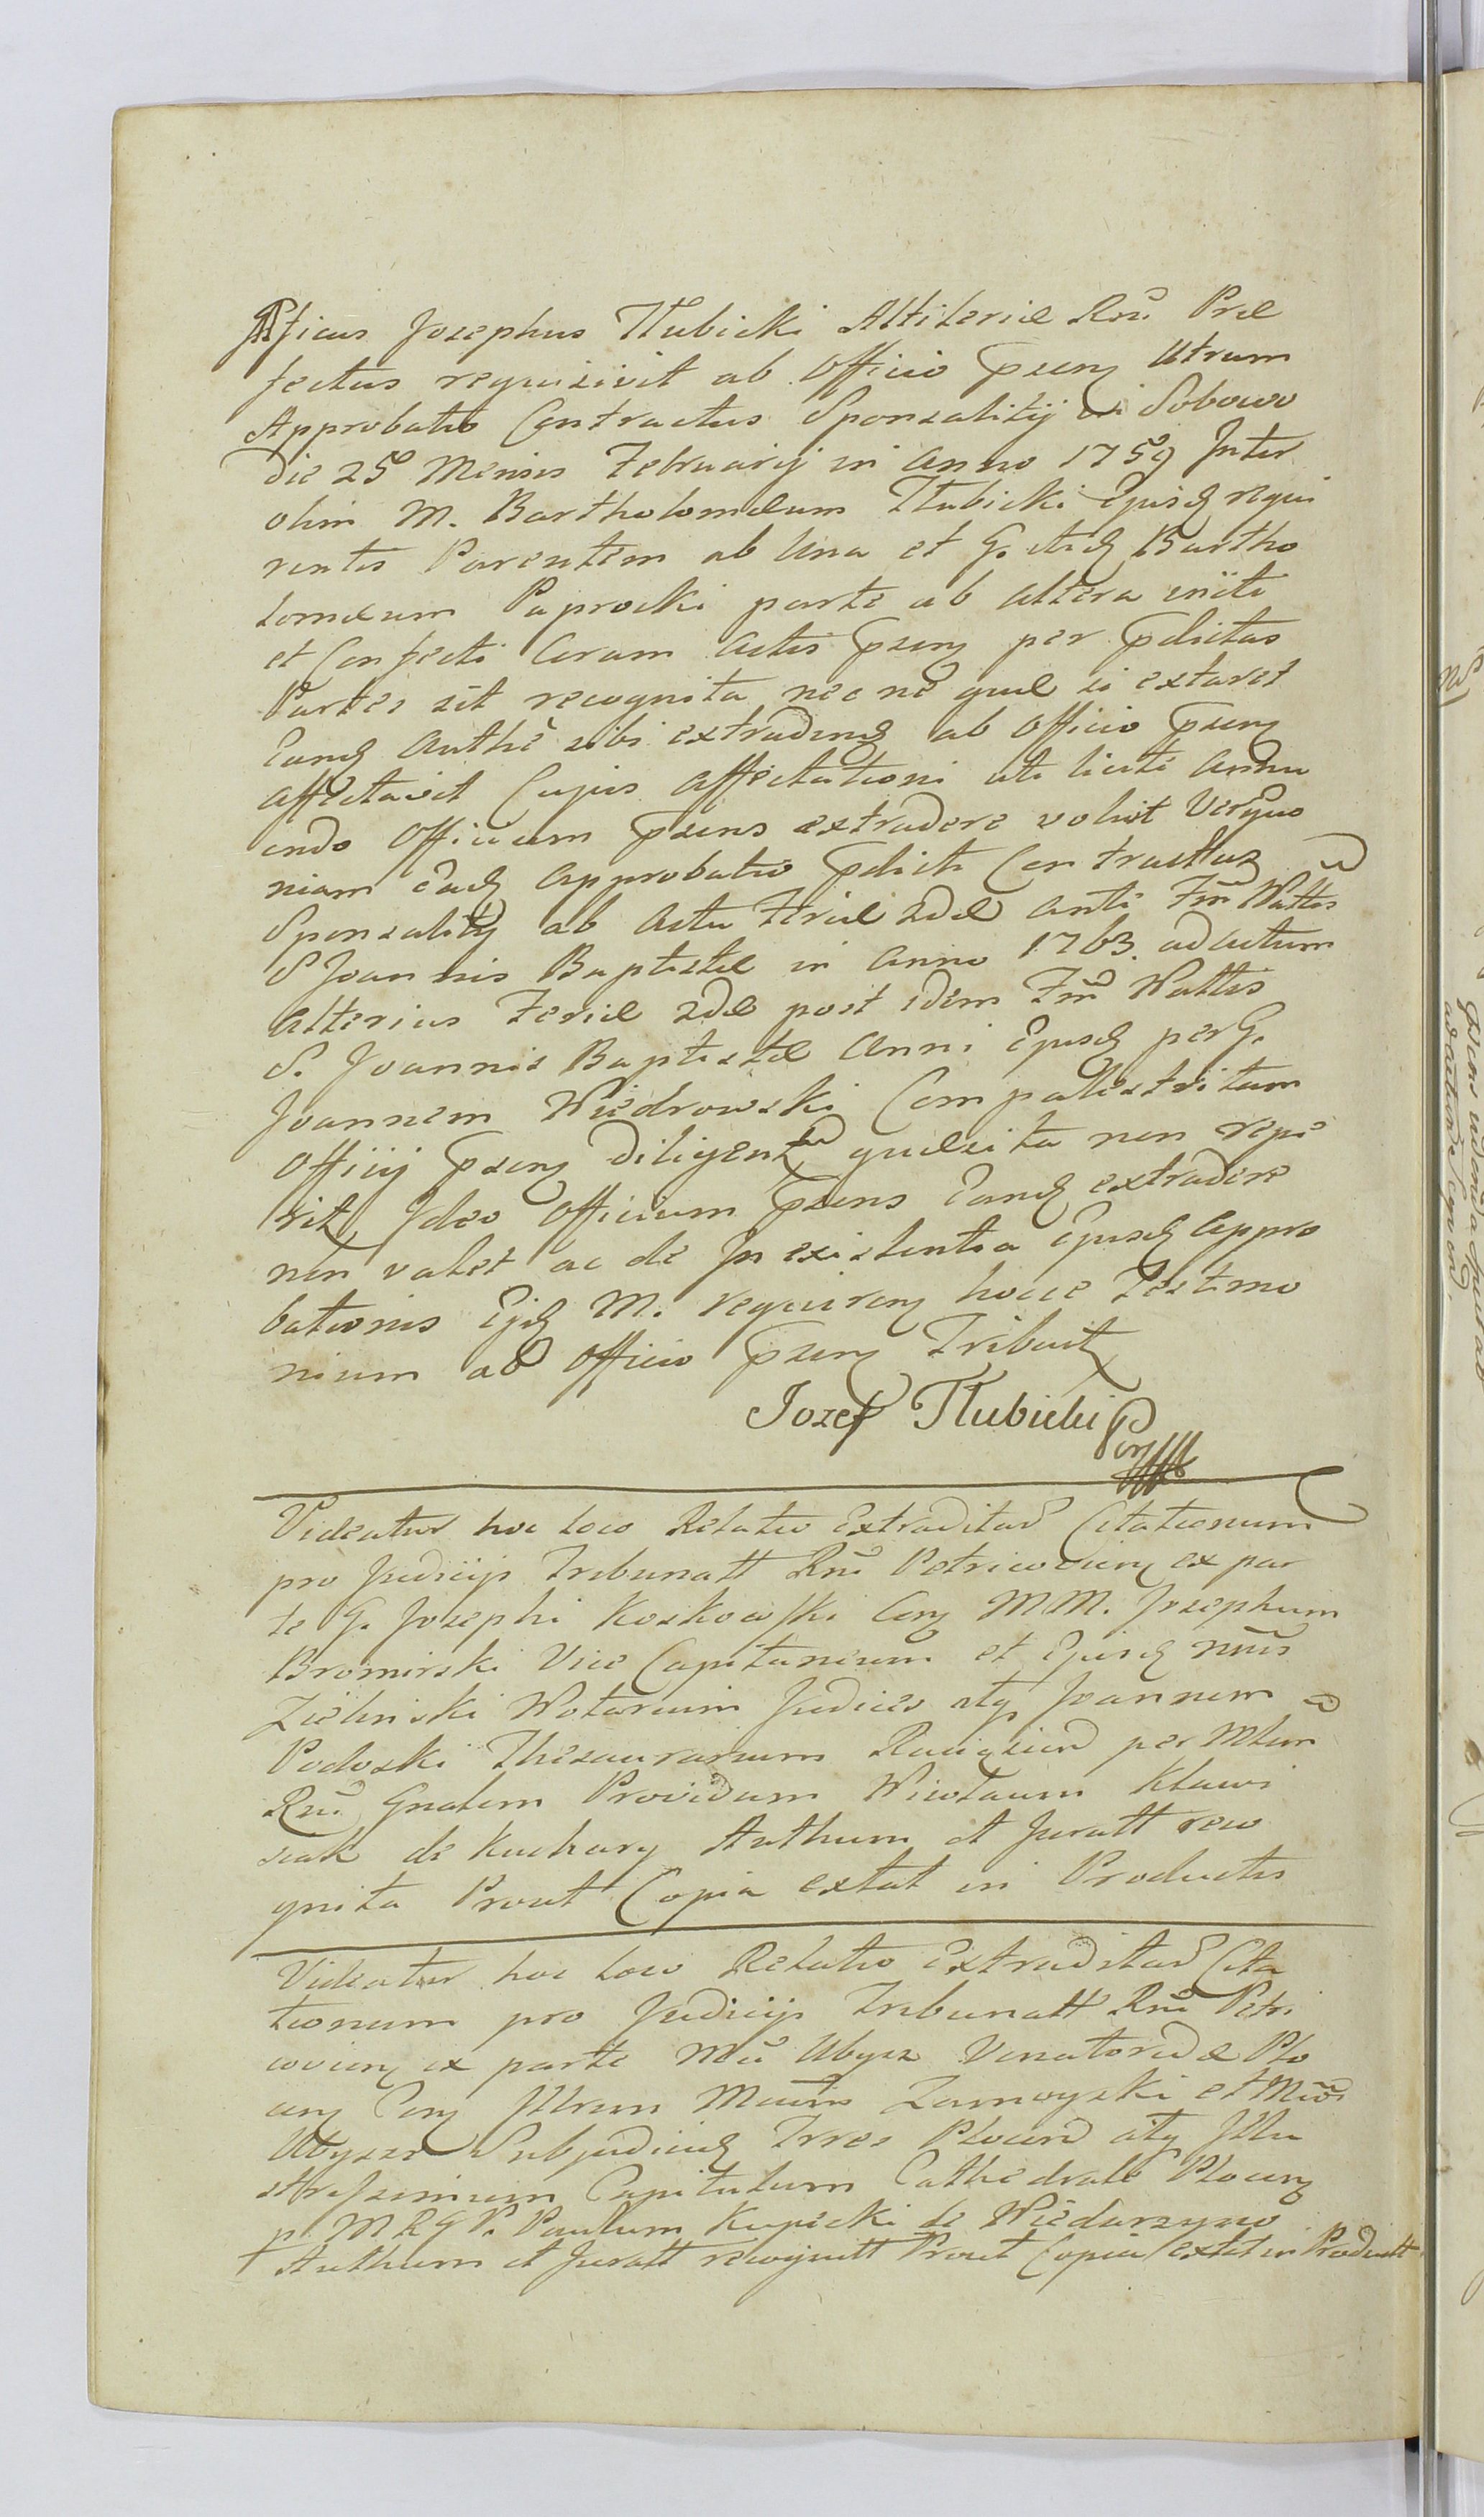 Mficus Josephus Tłubicki Altileriæ Rni Præ
fectus requisivit ab Officio pseng Utrum
Approbatio Contractus Sponsalitij in Sobowo
die 25 Mensis Februarij in Anno 1759 Inter
olim M. Bartholomæum Tłubicki Ejusd requi
rentis Parentem ab Una et G. itid Bartho
lomæum Paprocki parte ab altera initi
et Confecti Coram Actis pseng per pdictas
Partes sit recognita nec ne quæ si extaret
Eand Authe sibi extradend ab Officio pseng
affectavit Cujus affectationi uti licite Annu
endo Officium psens extradere voluit Verum quo
niam Ead Approbatio pdicti Contractus
Sponsalitij ab Actu Feriæ 2dæ ante Fm Nattis
S Joannis Baptistæ in Anno 1763 ad actum
alterius Feriæ 2dæ post idem Fm Nattis
S. Joannis Baptistæ Anni Ejusd per G.
Joannem Wiedrowski Compalestritam
Officij pseng diligent quæsita non repe
rit Ideo Officium psens Eand extradere
non valet ac de In existentia Ejusd Appro
bationis Ejd M. requireng hocce Testimo
nium ab Officio pseng Tribuit
Jozef Tłubicki
Videatur hoc loco Relatio Extraditar Citationum
pro Judicijs Tribunatt Rni Petricovieng ex par
te G. Josephi Koskowski Cong MM. Josephum
Bromirski Vice Capitaneum et Ejusd nnis
Zielinski Notarium Judices atq Joannem
Podoski Thesaurarium Raciązien per Mtum
Rni Gnalem Providum Nicolaum Klawi
siak de Kuchary Authum et Juratt reco
gnita Prout Copia extat in Productis
Videatur hoc loco Relatio Extraditar Cita
tionum pro Judicijs Tribunatt Rni Petri
covieng ex parte Mci Ubysz Venatoridæ Plo
ceng Cong Illrem Zamoyski et
Ubysz Subjudicid Trres Plocen atq Illu
strissimum Capitulum Cathedrale Ploceng
p. M R G P. Paulum Kupecki de
Authum et Juratt recognitt Prout Copia extat in Productt